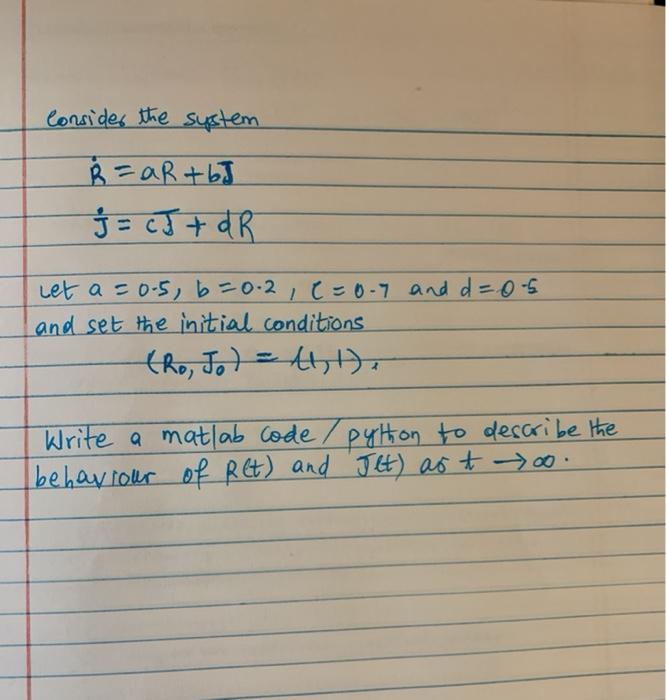 Consider the system
Ṙ = aR + bJ
J̇ = cJ + dR
Let a = 0.5, b = 0.2, c = 0.7 and d = 0.5
and set the initial conditions
(R₀, J₀) = (1, 1).
Write a matlab code / python to describe the
behaviour of R(t) and J(t) as t → ∞.